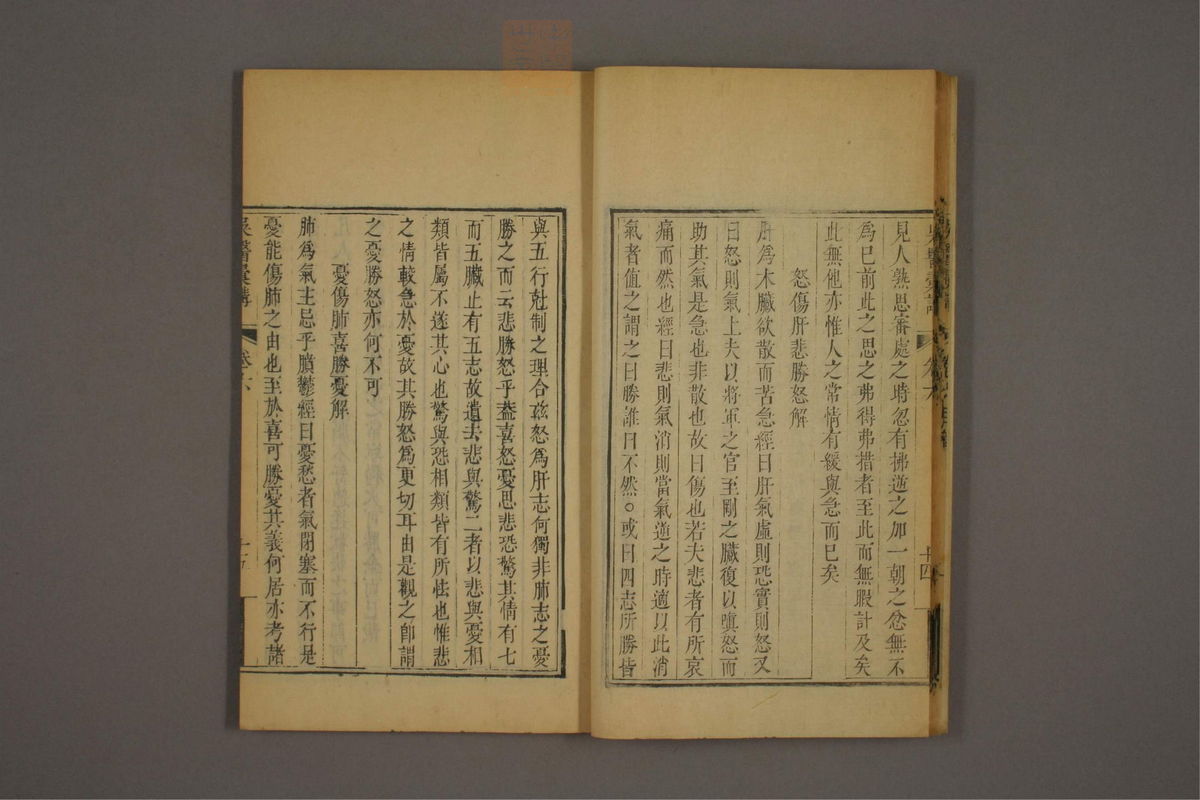 見人熟思審處之時忽有拂逆之加一朝之忿無不
爲已前此之思之弗得弗措者至此而無暇計及矣
此無他亦惟人之常情有緩與急而已矣
怒傷肝悲勝怒解
肝爲木臟欲散而苦急經曰肝氣虛則恐實則怒又
曰怒則氣上夫以將軍之官至剛之臟復以嗔怒而
助其氣是急也非散也故曰傷也若夫悲者有所哀
痛而然也經曰悲則氣消則當氣逆之時適以此消
氣者值之謂之曰勝誰曰不然○或曰四志所勝皆
與五行尅制之理合茲怒爲肝志何獨非肺志之憂
勝之而云悲勝怒乎蓋喜怒憂思悲恐驚其情有七
而五臟止有五志故遺去悲與驚二者以悲與憂相
類皆屬不遂其心也驚與恐相類皆有所怯也惟悲
之情較急於憂故其勝怒爲更切耳由是觀之卽謂
之憂勝怒亦何不可
憂傷肺喜勝憂解
肺爲氣主忌乎膹鬱經曰憂愁者氣閉塞而不行是
憂能傷肺之由也至於喜可勝憂其義何居亦考諸
吳醫彙講
卷六